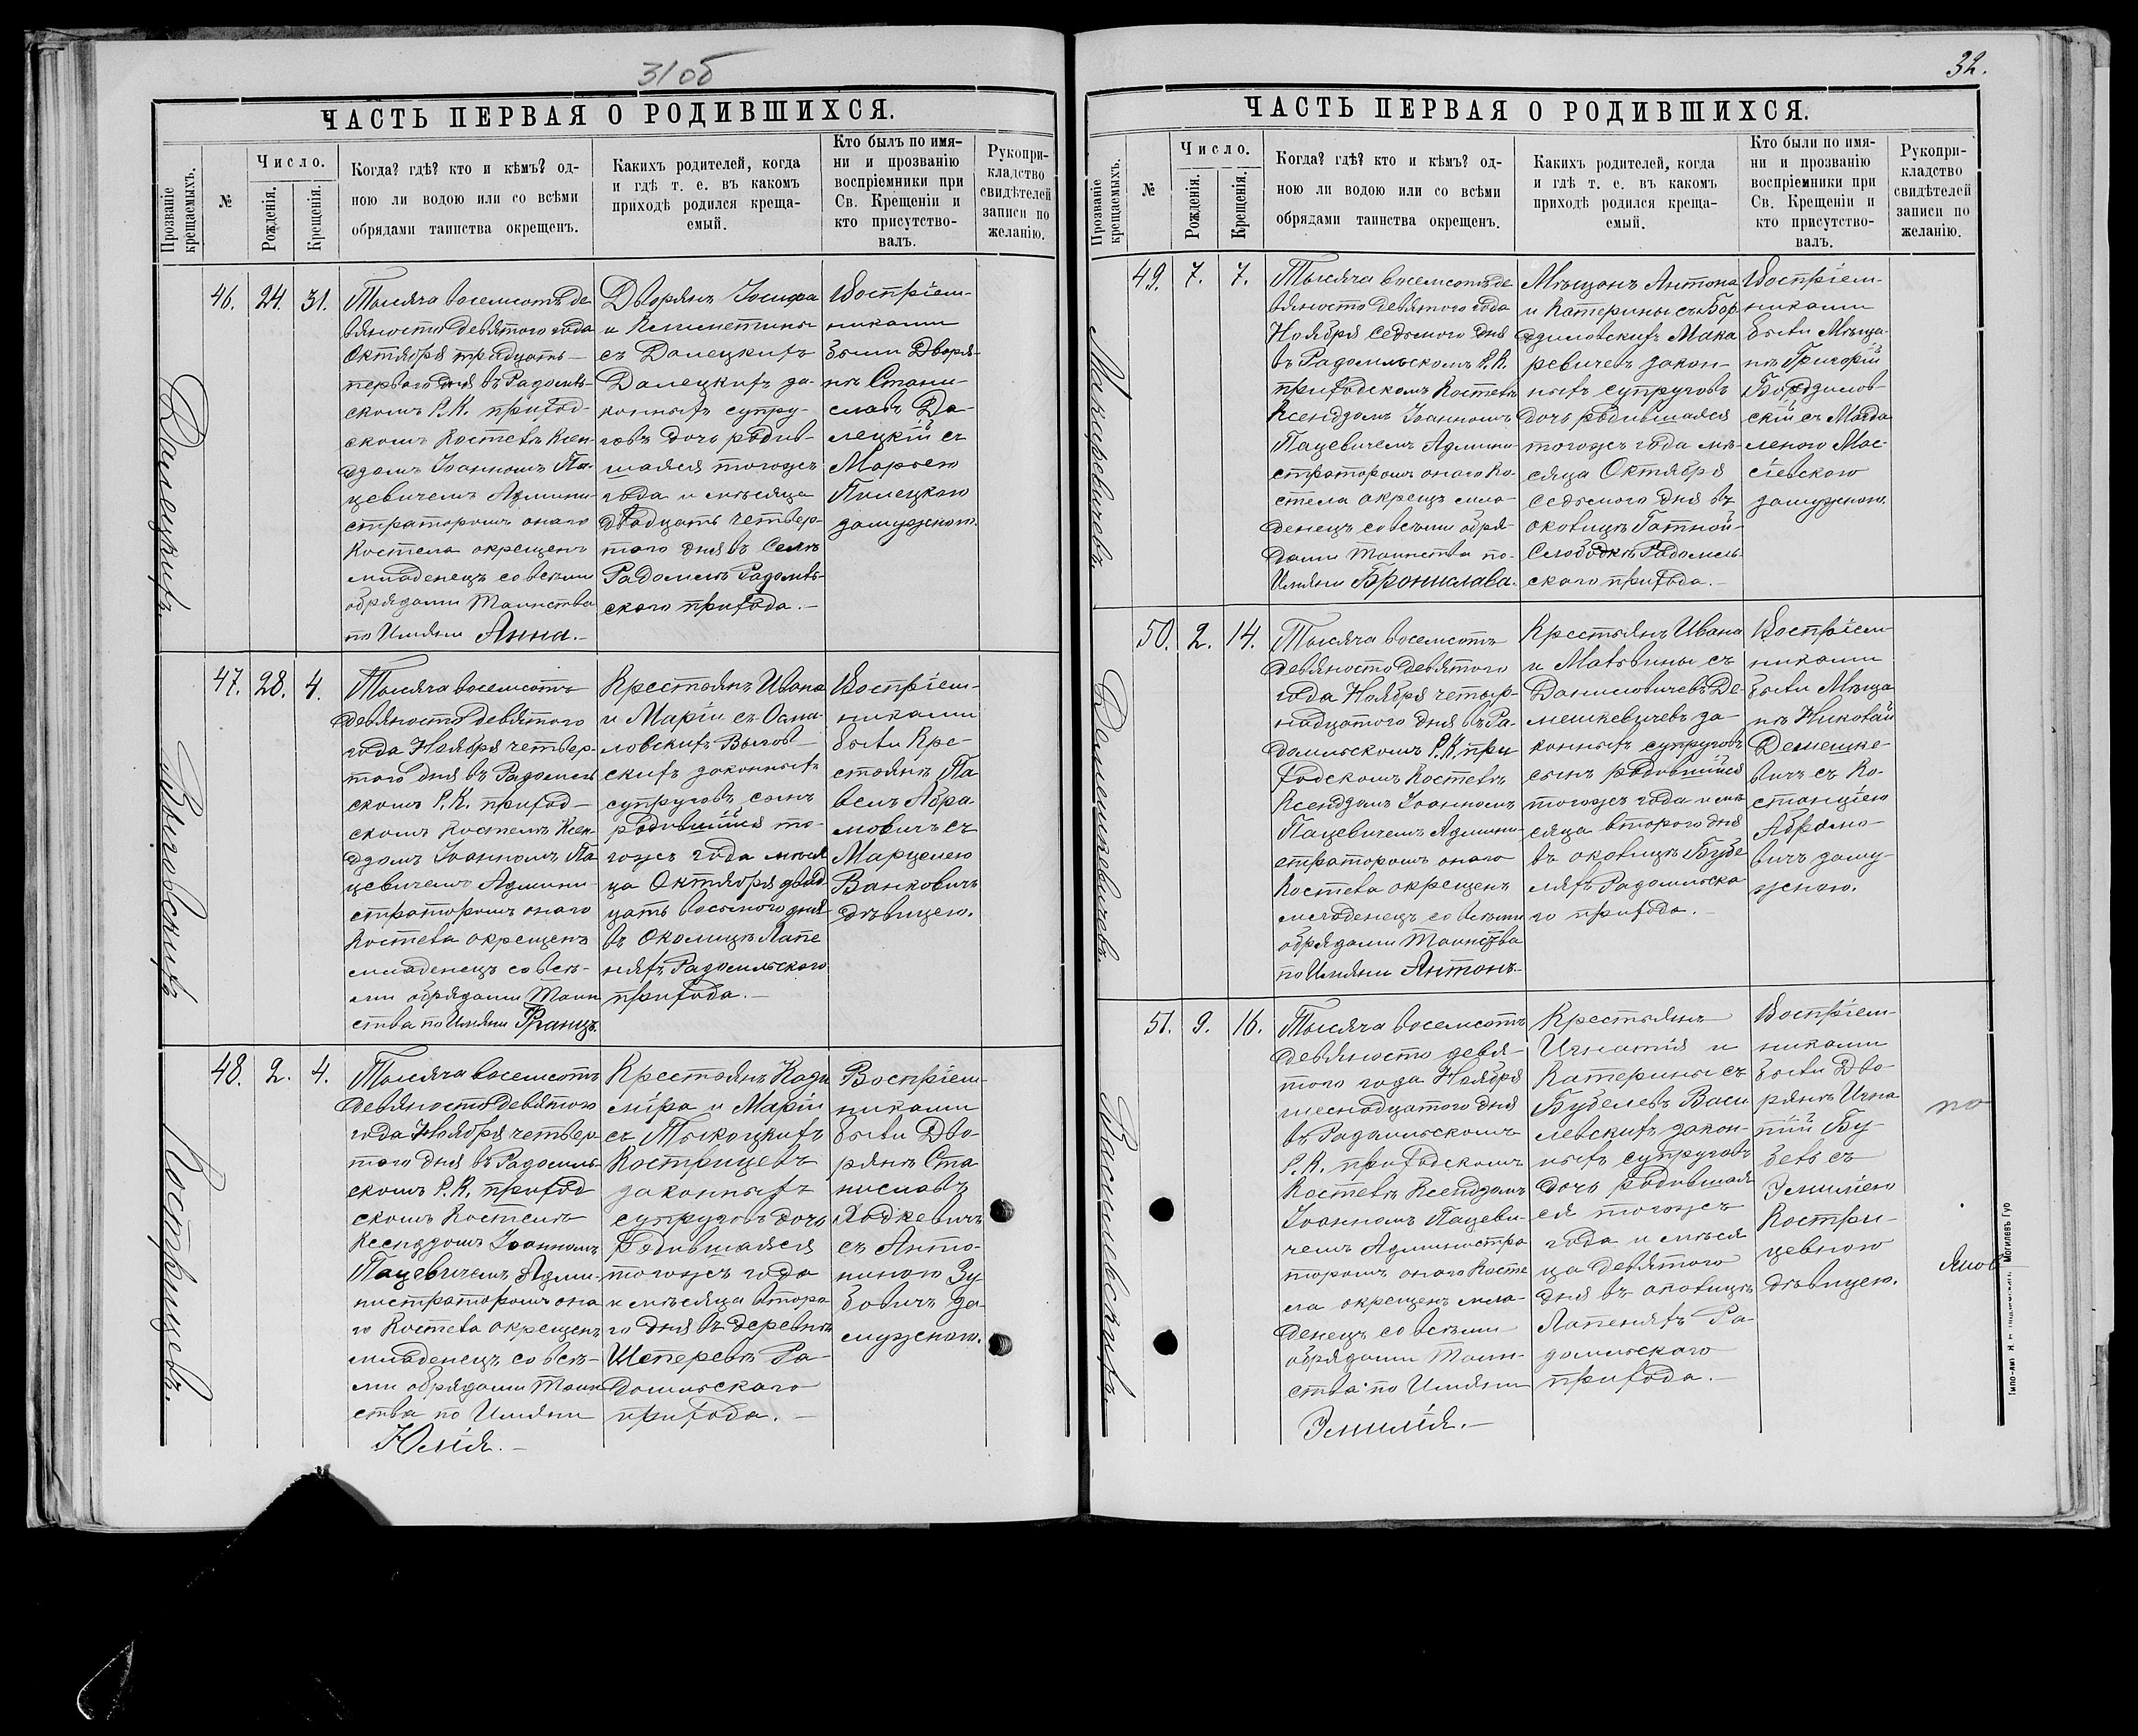 31 об
ЧАСТЬ ПЕРВАЯ О РОДИВШИХСЯ.
Прозваніе крещаемыхъ.
№
Число.
Рожденія.
Крещенія.
Когда? гдѣ? кто и кѣмъ? од-
ною ли водою или со всѣми
обрядами таинства окрещенъ.
Какихъ родителей, когда
и гдѣ т. е. въ какомъ
приходѣ родился креща-
емый.
Кто былъ по имя-
ни и прозванію
воспріемники при
Св. Крещеніи и
кто присутство-
валъ.
Рукопри-
кладство
свидѣтелей
записи по
желанію.
Далецкихъ.
46.
24.
31.
Тысяча восемсотъ де
вяносто девятого года
Октября тридцать
первого дня въ Радомль-
скомъ Р. К. приход-
скомъ Костелѣ Ксен-
дзомъ Іоанномъ Па-
цевичемъ Админи-
страторомъ онаго
Костела окрещенъ
младенецъ со всѣми
обрядами Таинства
по Имяни Анна.
Дворянъ Іосифа
и Клементины
съ Далецкихъ
Далецкихъ за-
конныхъ супру-
говъ дочь родив-
шаяся тогожъ
года и мѣсяца
двадцать четвер-
того дня въ Селѣ
Радомлѣ Радомль-
ского прихода.
Воспріем-
никами
были Дворя-
нѣ Стани-
славъ Да-
лецкій съ
Марьею
Пилецкою
замужнот.
Выговскихъ
47.
28.
4.
Тысяча восемсотъ
девяносто девятого
года Ноября четвер-
того дня въ Радомль
скомъ Р. К. приход-
скомъ Костелѣ Ксен-
дзомъ Іоанномъ Па
цевичемъ Админи-
страторомъ онаго
Костела окрещенъ
младенецъ со всѣ-
ми обрядами Таин
ства по Имяни Францъ.
Крестьянъ Ивана
и Маріи съ Осма-
ловскихъ Выгов-
скихъ законныхъ
супруговъ сынъ
родившійся то-
гожъ года мѣся
ца Октября двад
цать восьмого дня
въ Околицѣ Лапе
няхъ Радомльского
прихода.
Воспріем-
никами
были Кре-
стьянѣ Па
велъ Абра-
мовичъ съ
Марцелею
Ванковичъ
дѣвицею.
Кострицевъ.
48.
2.
4.
Тысяча восемсотъ
девяносто девятого
года Ноября четвер
того дня въ Радомль-
скомъ Р. К. приход
скомъ Костелѣ
Ксендзомъ Іоанномъ
Пацевичемъ Адми-
нистраторомъ она
го Костела окрещенъ
младенецъ со всѣ-
ми обрядами Таин
ства по Имяни
Юлія.
Крестьянъ Кази
міра и Маріи
съ Тыкоцкихъ
Кострицевъ
законныхъ
супруговъ дочь
родившаяся
тогожъ года
и мѣсяца второ
го дня въ деревнѣ
Щеперевѣ Ра-
домльского
прихода.
Воспріем-
никами
были Дво-
рянѣ Ста
ниславъ
Ходкевичъ
съ Анто-
ниною Зу
бовичъ за-
мужною.
32.
ЧАСТЬ ПЕРВАЯ О РОДИВШИХСЯ.
Прозваніе крещаемыхъ.
№
Число.
Рожденія.
Крещенія.
Когда? гдѣ? кто и кѣмъ? од-
ною ли водою или со всѣми
обрядами таинства окрещенъ.
Какихъ родителей, когда
и гдѣ т. е. въ какомъ
приходѣ родился креща-
емый.
Кто были по имя-
ни и прозванію
воспріемники при
Св. Крещеніи и
кто присутство-
валъ.
Рукопри-
кладство
свидѣтелей
записи по
желанію.
Макаревичевъ
49.
7.
7.
Тысяча восемсотъ де
вяносто девятого года
Ноября седьмого дня
въ Радомльскомъ Р. К.
приходскомъ Костелѣ
Ксендзомъ Іоанномъ
Пацевичемъ Админи-
страторомъ онаго Ко-
стела окрещ. мла-
денецъ со всѣми обря-
дами Таинства по-
Имяни Брониславa.
Мѣщанъ Антона
и Катерины съ Бор
здиловскихъ Мака
ревичевъ закон-
ныхъ супруговъ
дочь родившаяся
тогожъ года мѣ-
сяца Октября
седьмого дня въ
околицѣ Гатной-
Слободкѣ Радомль
ского прихода.
Воспріем-
никами
были Мѣща-
нѣ Григорій
Борздилов
скій съ Магда
леною Мас-
левскою
замужною.
Демешкевичевъ.
50.
2.
14.
Тысяча восемсотъ
девяносто девятого
года Ноября четыр-
надцатого дня въ Ра-
домльскомъ Р. К. при
ходскомъ Костелѣ
Ксендзомъ Іоанномъ
Пацевичемъ Админи-
страторомъ онаго
Костела окрещенъ
младенецъ со всѣми
обрядами Таинства
по Имяни Антонъ.
Крестьянъ Ивана
и Мальвины съ
Даниловичевъ Де-
мешкевичевъ за-
конныхъ супруговъ
сынъ родившійся
тогожъ года и мѣ
сяца второго дня
въ околицѣ Бубе
ляхъ Радомльска
го прихода.
Воспріем-
никами
были Мѣща
нѣ Николай
Демешке-
вичъ съ Ко-
станціею
Абрамо-
вичъ заму-
жною.
Василевскихъ
51.
9.
16.
Тысяча восемсотъ
девяносто девя-
того года Ноября
шеснадцатого дня
въ Радомльскомъ
Р. К. приходскомъ
Костелѣ Ксендзомъ
Іоанномъ Пацеви-
чемъ Администра
торомъ онаго Косте
ла окрещенъ мла-
денецъ со всѣми
обрядами Таин-
ства по Имяни
Эмилія.
Крестьянъ
Игнатія и
Катерины съ
Бубелевъ Васи
левскихъ закон-
ныхъ супруговъ
дочь родившая
ся тогожъ
года и мѣся
ца девятого
дня въ околицѣ
Лапеняхъ Ра-
домльского
прихода.
Воспріем-
никами
были Дво-
рянѣ Игна
тій Бу-
бель съ
Эмиліею
Костри-
цевною
дѣвицею.
по
Могилевъ Губ